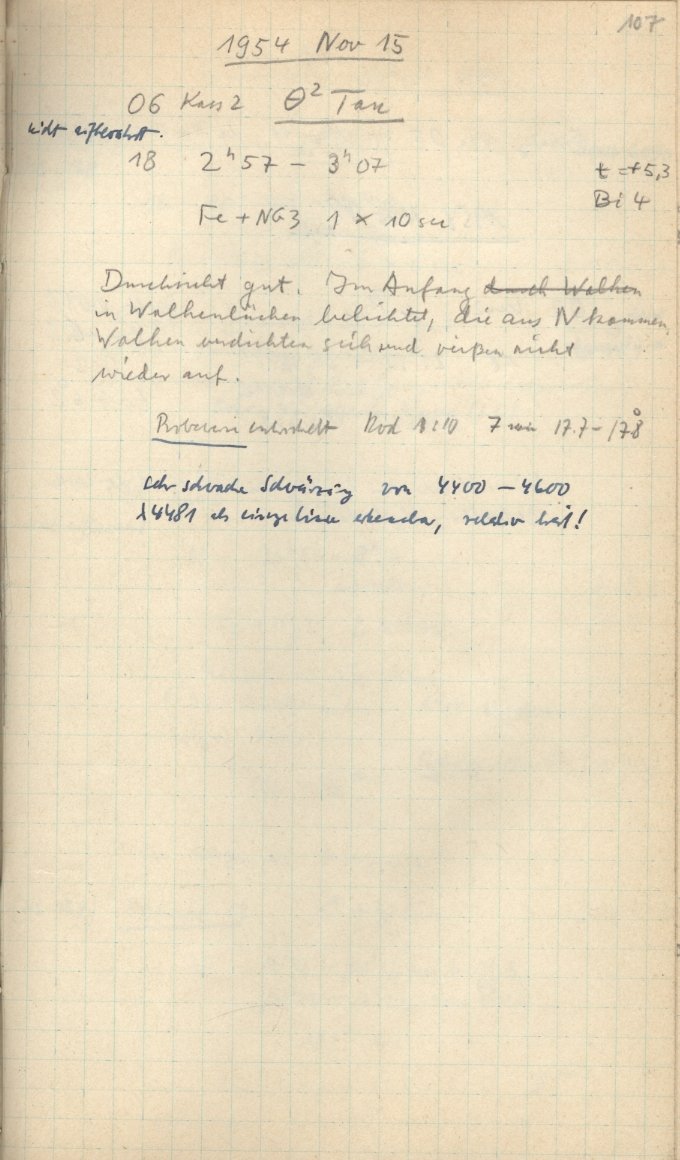 107
1954 Nov 15
06 Kass 2 θ² Tau
nicht aufbewahrt.
18 2ʰ57 – 3ʰ07
t = +5,3
Bi 4
Fe + NG3 1 × 10 sec
Durchsicht gut. Im Anfang durch Wolken
in Wolkenlücken belichtet, die aus N kommen,
Wolken verdichten sich und reißen nicht
wieder auf.
entwickelt Rod 1:10 7 min 17.7 – 17.8°
sehr schwache Schwärzung von 4400 – 4600
λ 4481 als einzige Linie erkennbar, relativ breit!